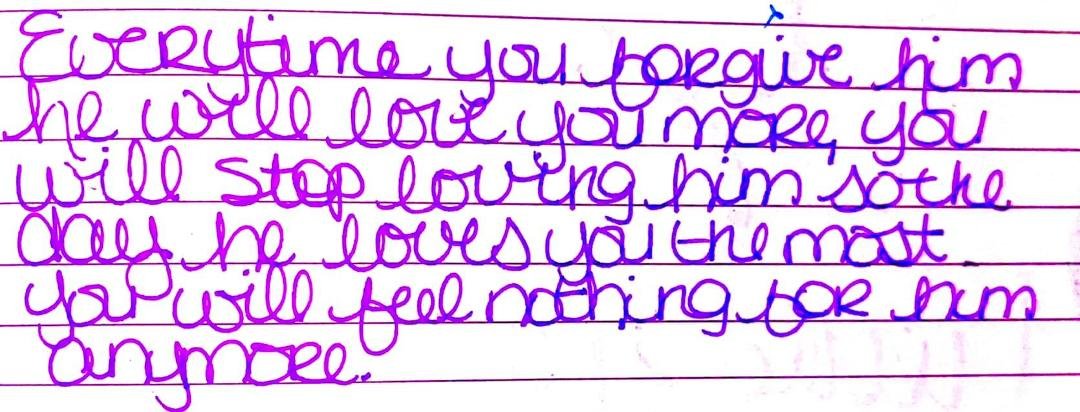 Everytime you forgive him
he will love you more, you
will stop loving him so the
day he loves you the most
you will feel nothing for him
anymore.